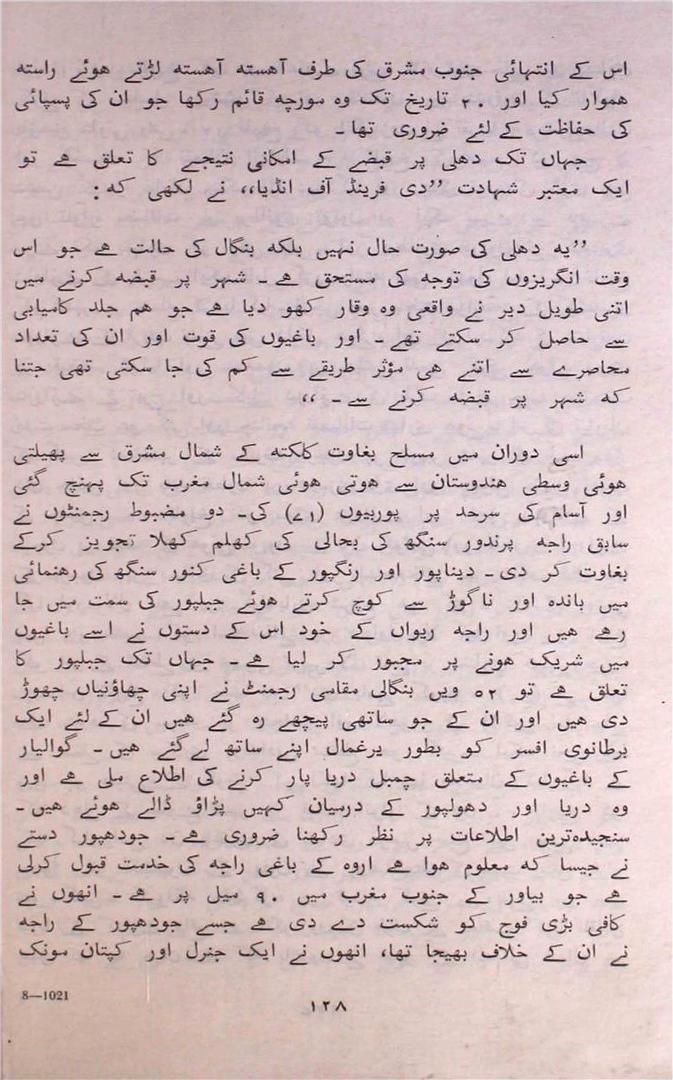 اس کے انتہائی جنوب مشرق کی طرف آهسته آهسته لڑتے هوئے راسته
هموار کیا اور ۲۰ تاریخ تک وه مورچه قائم رکھا جو ان کی پسپائی
کی حفاظت کے لئے ضروری تھا۔
جہاں تک دهلی پر قبضے کے امکانی نتیجے کا تعلق هے تو
ایک معتبر شہادت ’’دی فرینڈ آف انڈیا،، نے لکھی که:
’’یه دهلی کی صورت حال نہیں بلکه بنگال کی حالت هے جو اس
وقت انگریزوں کی توجه کی مستحق هے۔ شہر پر قبضه کرنے میں
اتنی طویل دیر نے واقعی وه وقار کھو دیا هے جو هم جلد کامیابی
سے حاصل کر سکتے تھے۔ اور باغیوں کی قوت اور ان کی تعداد
محاصرے سے اتنے هی مؤثر طریقے سے کم کی جا سکتی تھی جتنا
که شہر پر قبضه کرنے سے۔،،
اسی دوران میں مسلح بغاوت کلکته کے شمال مشرق سے پھیلتی
هوئی وسطی هندوستان سے هوتی هوئی شمال مغرب تک پہنچ گئی
اور آسام کی سرحد پر پوربیوں (۷۱) کی۔ دو مضبوط رجمنٹوں نے
سابق راجه پرندور سنگھ کی بحالی کی کھلم کھلا تجویز کرکے
بغاوت کر دی۔ دیناپور اور رنگپور کے باغی کنور سنگھ کی رهنمائی
میں بانده اور ناگوڑ سے کوچ کرتے هوئے جبلپور کی سمت میں جا
رهے هیں اور راجه ریواں کے خود اس کے دستوں نے اسے باغیوں
میں شریک هونے پر مجبور کر لیا هے۔ جہاں تک جبلپور کا
تعلق هے تو ۵۲ ویں بنگالی مقامی رجمنٹ نے اپنی چھاؤنیاں چھوڑ
دی هیں اور ان کے جو ساتھی پیچھے ره گئے هیں ان کے لئے ایک
برطانوی افسر کو بطور یرغمال اپنے ساتھ لے گئے هیں۔ گوالیار
کے باغیوں کے متعلق چمبل دریا پار کرنے کی اطلاع ملی هے اور
وه دریا اور دھولپور کے درمیان کہیں پڑاؤ ڈالے هوئے هیں۔
سنجیدهترین اطلاعات پر نظر رکھنا ضروری هے۔ جودھپور دستے
نے جیسا که معلوم هوا هے اروه کے باغی راجه کی خدمت قبول کرلی
هے جو بیاور کے جنوب مغرب میں ۹۰ میل پر هے۔ انھوں نے
کافی بڑی فوج کو شکست دے دی هے جسے جودھپور کے راجه
نے ان کے خلاف بھیجا تھا، انھوں نے ایک جنرل اور کپتان مونک
8—1021
۱۲۸